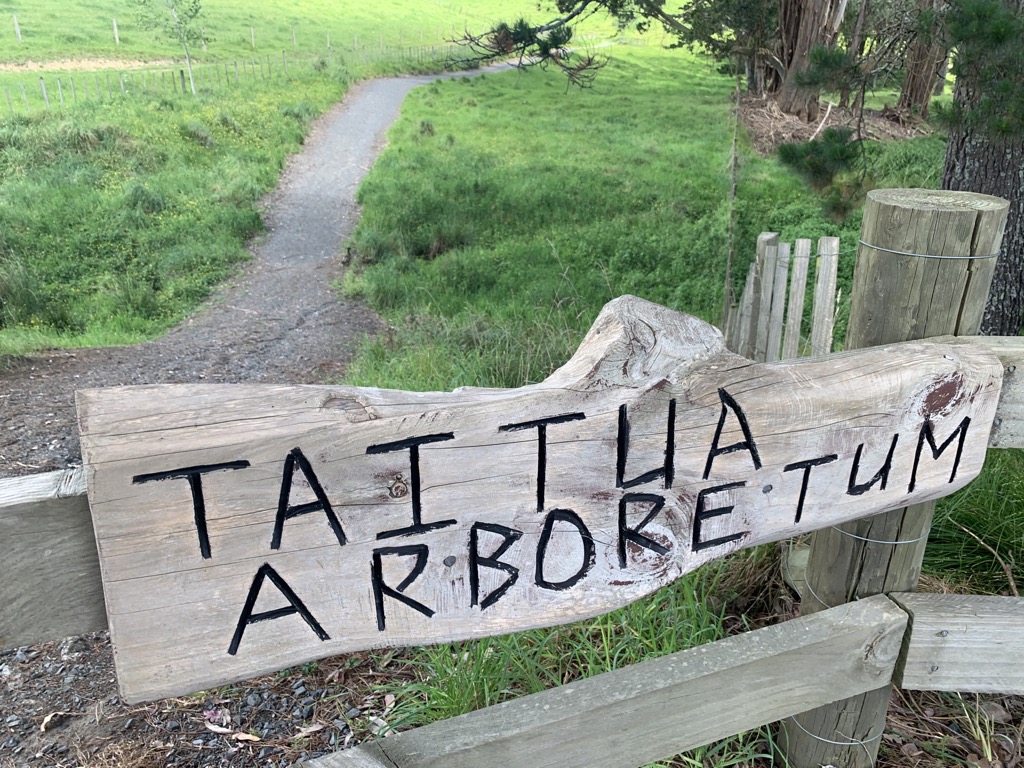 TAITUA
ARBORETUM